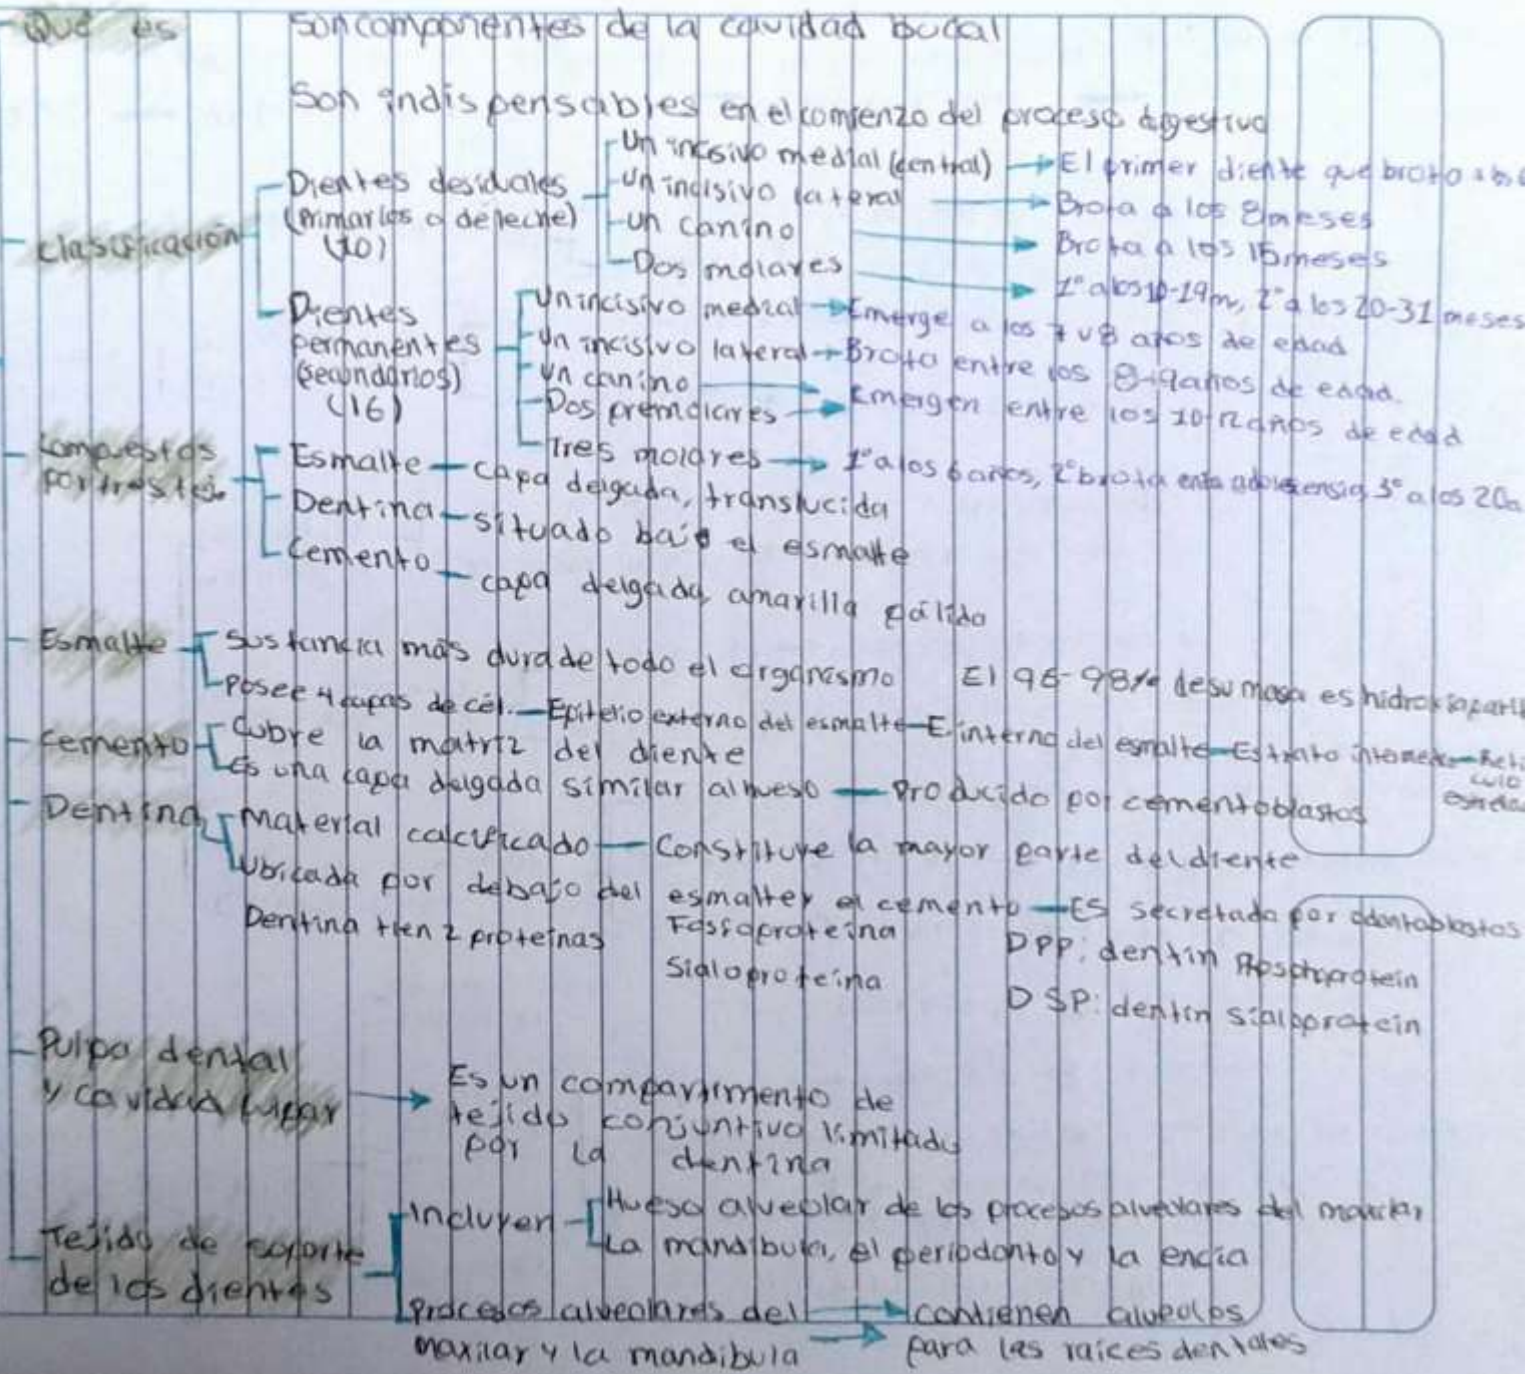 Que es
Son componentes de la cavidad bucal
Son indispensables en el comienzo del proceso digestivo
Clasificación
Dientes desiduales
(Primarios o de leche)
(10)
Un incisivo medial (central) → El primer diente que broto a los
Un indisivo lateral → Brota a los 8 meses
Un canino → Brota a los 15 meses
Dos molares → 1° a los 10-19m, 2° a los 20-31 meses
Dientes
permanentes
(secundarios)
(16)
Un incisivo medial → Emerge a los 7 u 8 años de edad
Un incisivo lateral → Brota entre los 8-9 años de edad.
Un canino
Dos premolares → Emergen entre los 10-12 años de edad
Tres molares → 1° a los 6 años, 2° brota 3° a los 20a
Compuestos
por tres tej.
Esmalte - capa delgada, translucida
Dentina - situado bajo el esmalte
Cemento - capa delgada amarilla pálido
Esmalte
Sustancia más dura de todo el organismo
El 96-98% de su masa es
Posee 4 capas de cél. - Epitelio externo del esmalte - E. interno del esmalte - Estrato
Cemento
Cubre la matriz del diente
Es una capa delgada similar al hueso - Producido por cementoblastos
Dentina
Material calcificado - Constituye la mayor parte del diente
Ubicada por debajo del esmalte y el cemento - Es secretada por odontoblastos
Dentina tien 2 proteínas
Fosfoproteína
Sialoproteína
DPP: dentin
DSP: dentin sialoprotein
Pulpa dental
y cavidad
→ Es un compartimento de
tejido conjuntivo limitado
por la dentina
Tejido de soporte
de los dientes
Incluyen
Hueso alveolar de los procesos alveolares del maxilar
La mandibula, el periodonto y la encia
Procesos alveolares del → contienen alveolos
maxilar y la mandibula → para las raices dentales